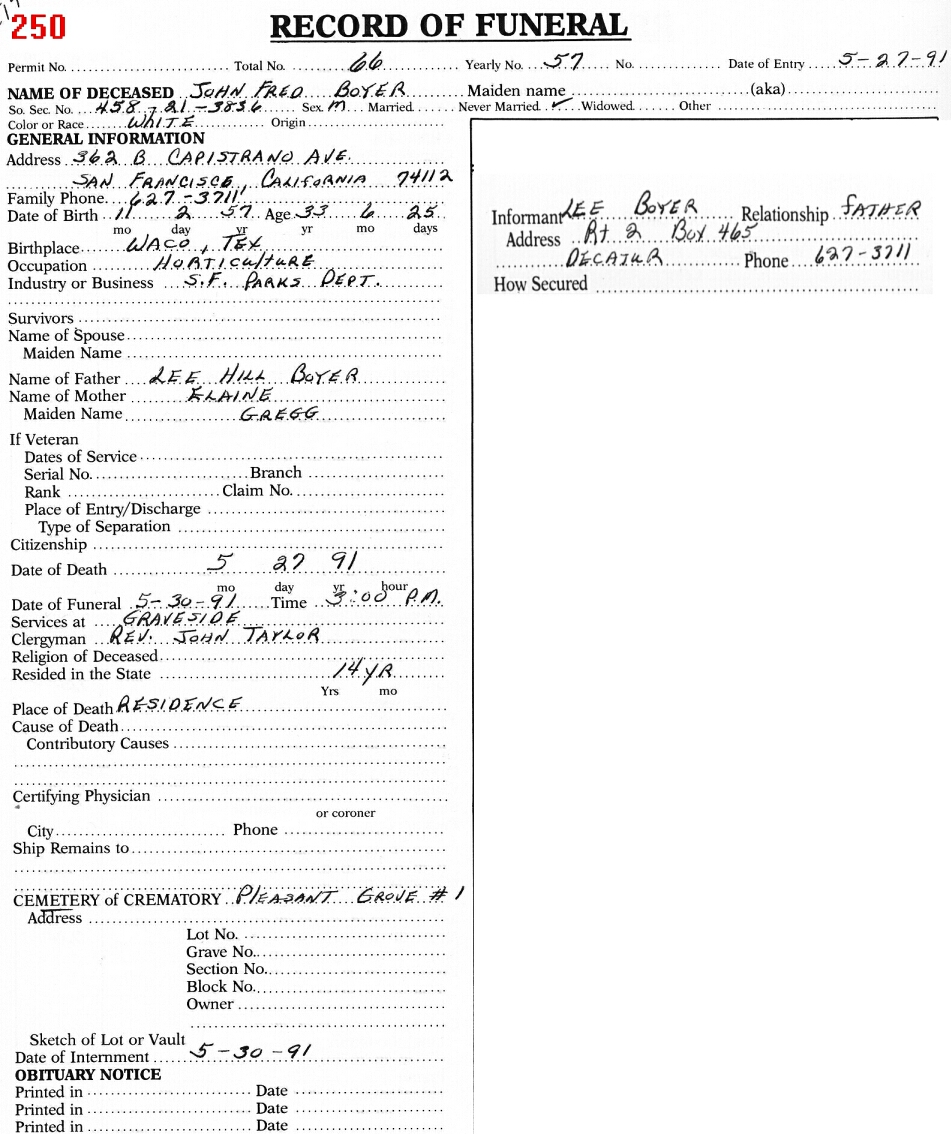 250
RECORD OF FUNERAL
Permit No. Total No. 66 Yearly No. 57 No. Date of Entry 5-27-91
NAME OF DECEASED JOHN FRED BOYER Maiden name (aka)
So. Sec. No. 458-21-3836 Sex M Married Never Married ✓ Widowed Other
Color or Race WHITE Origin
GENERAL INFORMATION
Address 362 B CAPISTRANO AVE.
SAN FRANCISCE, CALIFORNIA 74112
Family Phone 627-3711
Date of Birth 11 2 57 Age 33 6 25
mo day yr yr mo days
Birthplace WACO, TEX
Occupation HORTICULTURE
Industry or Business S.F. PARKS DEPT.
Survivors
Name of Spouse
Maiden Name
Name of Father LEE HILL BOYER
Name of Mother ELAINE
Maiden Name GREGG
If Veteran
Dates of Service
Serial No. Branch
Rank Claim No.
Place of Entry/Discharge
Type of Separation
Citizenship
Date of Death 5 27 91
mo day yr hour
Date of Funeral 5-30-91 Time 3:00 P.M.
Services at GRAVESIDE
Clergyman REV. JOHN TAYLOR
Religion of Deceased
Resided in the State 14 YR
Yrs mo
Place of Death RESIDENCE
Cause of Death
Contributory Causes
Certifying Physician
or coroner
City Phone
Ship Remains to
CEMETERY of CREMATORY PLEASANT GROVE #1
Address
Lot No.
Grave No.
Section No.
Block No.
Owner
Sketch of Lot or Vault
Date of Internment 5-30-91
OBITUARY NOTICE
Printed in Date
Printed in Date
Printed in Date
Informant LEE BOYER Relationship FATHER
Address Rt 2 Box 465
DECATUR Phone 627-3711
How Secured